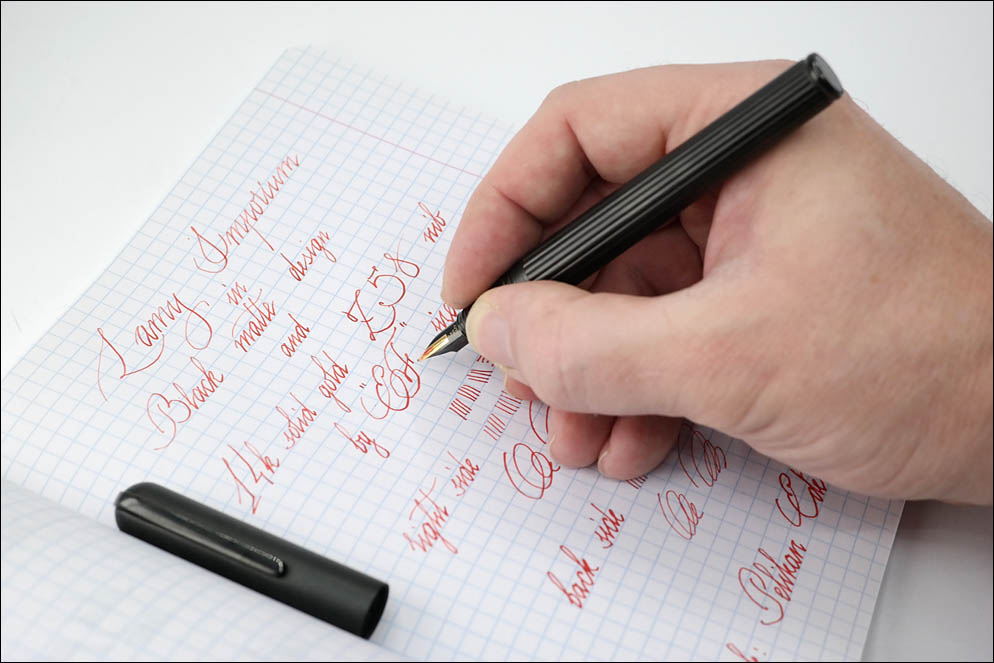 Lamy Imporium
Black in
matte design
and
14k solid gold Z58 nib
by "EF"
right side
back side
Pelikan Ede